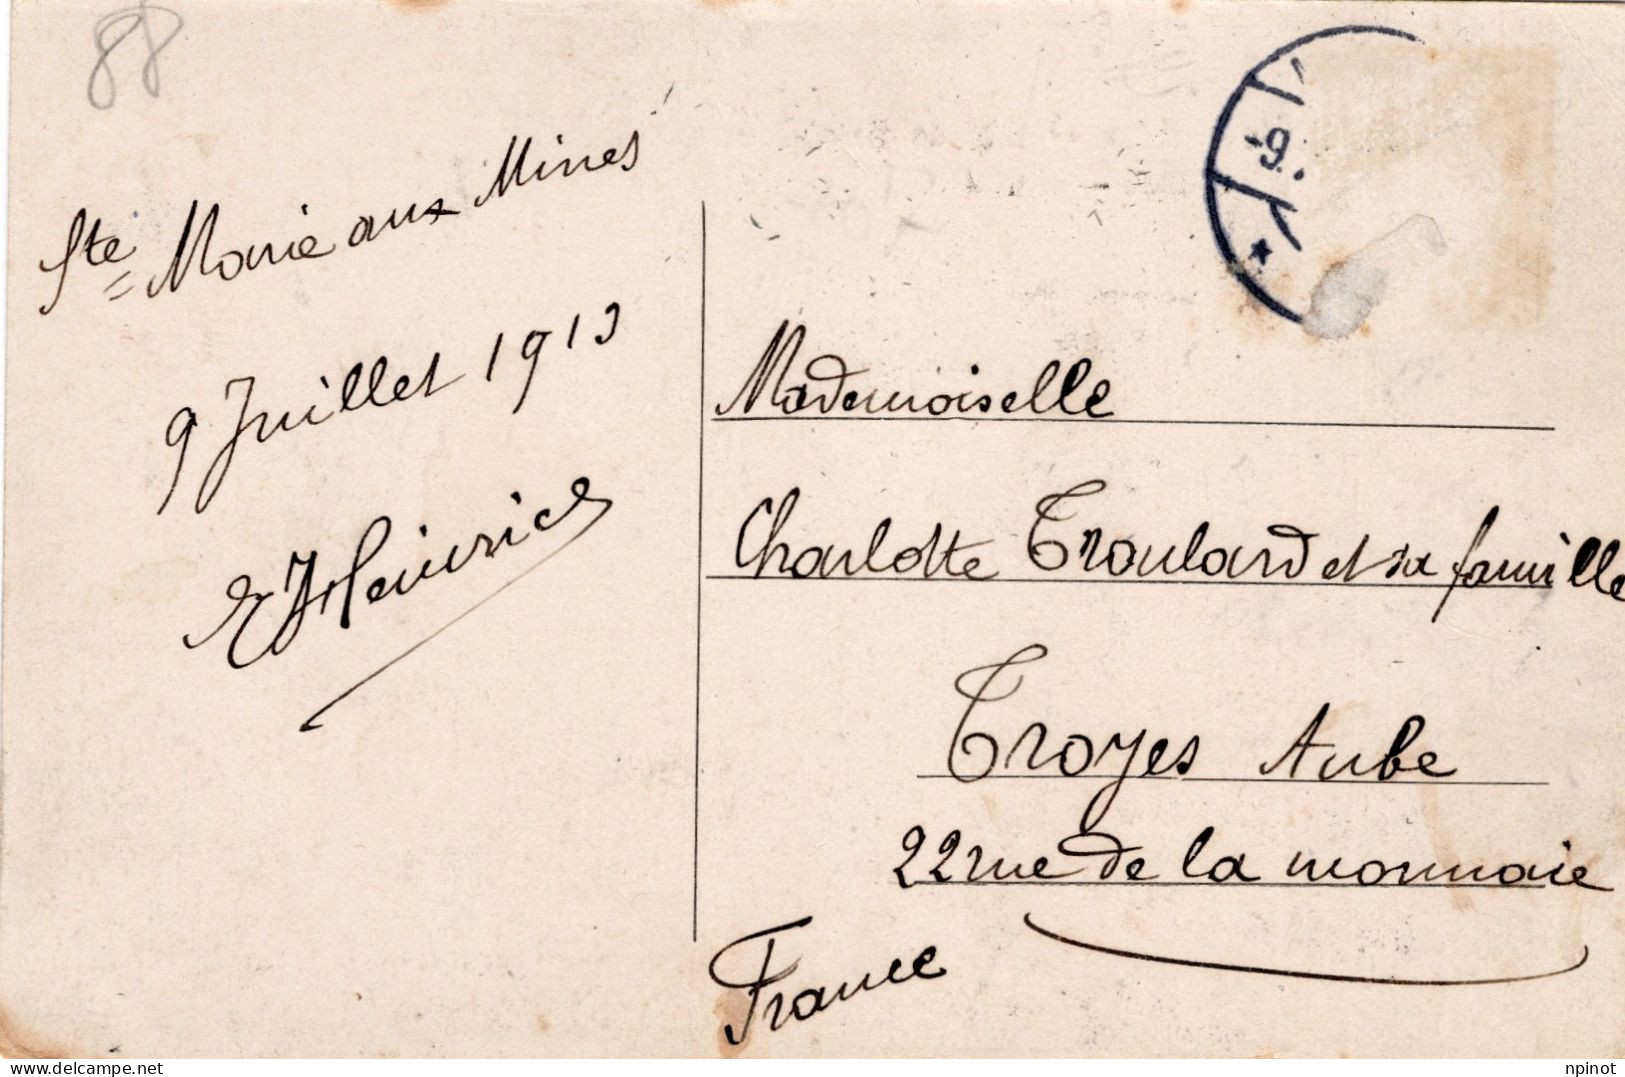 88
Ste Marie aux Mines
9 Juillet 1913
-9.
Mademoiselle
Charlotte Troulard et sa famille
Troyes Aube
22 rue de la monnaie
France
delcampe.net
npinot